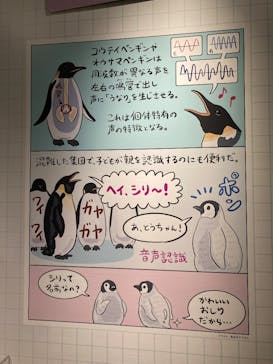 コウテイペンギンや
オウサマペンギンは
周波数が異なる声を
左右の鳴管で出し
声に「うなり」を生じさせる。
これは個体特有の
声の特徴となる。
混雑した集団で、子どもが親を認識するのにも便利だ。
ヘイ、シリ〜!
フィフィ
ガヤガヤ
ポン
あ、とうちゃん!
音声認識
シリって
名前なの?
かわいい
おしり
だから…